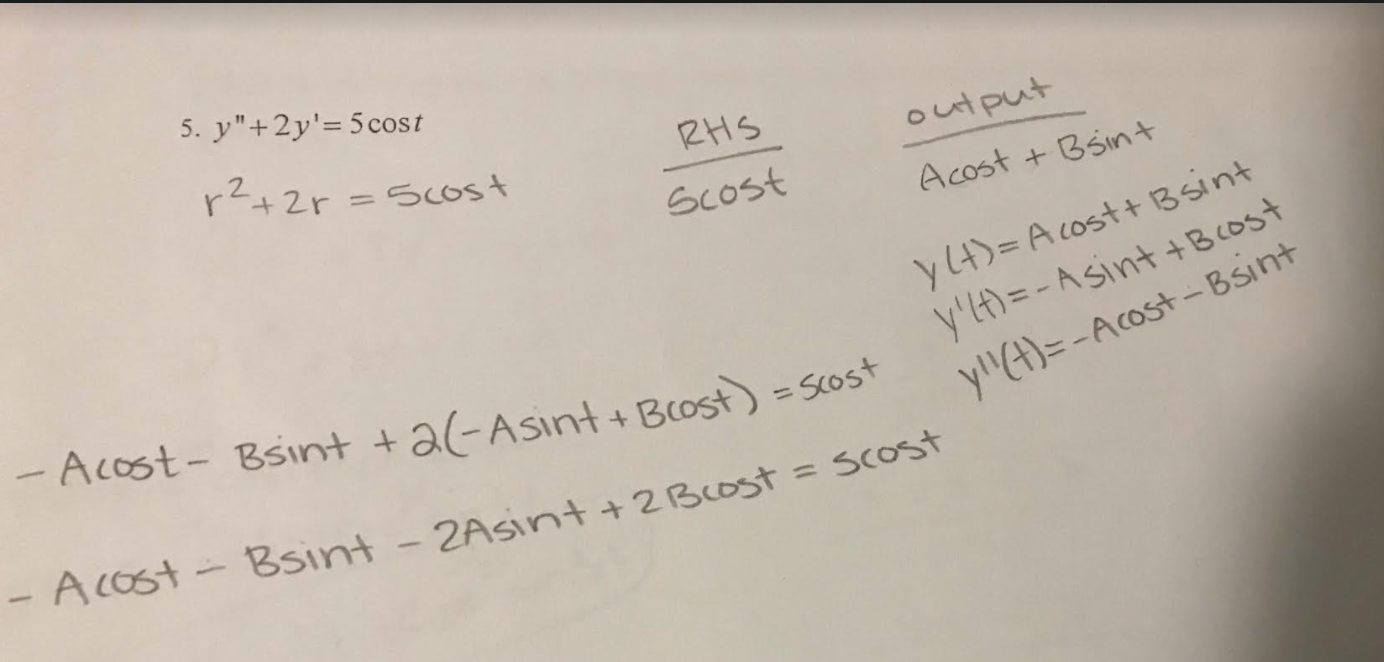 5. y"+2y'= 5cost
r²+2r = 5cost
RHS
5cost
output
Acost + Bsint
y(t)=Acost+Bsint
y'(t)=-Asint+Bcost
y''(t)=-Acost-Bsint
-Acost- Bsint +2(-Asint+Bcost) =5cost
-Acost- Bsint - 2Asint +2Bcost = 5cost